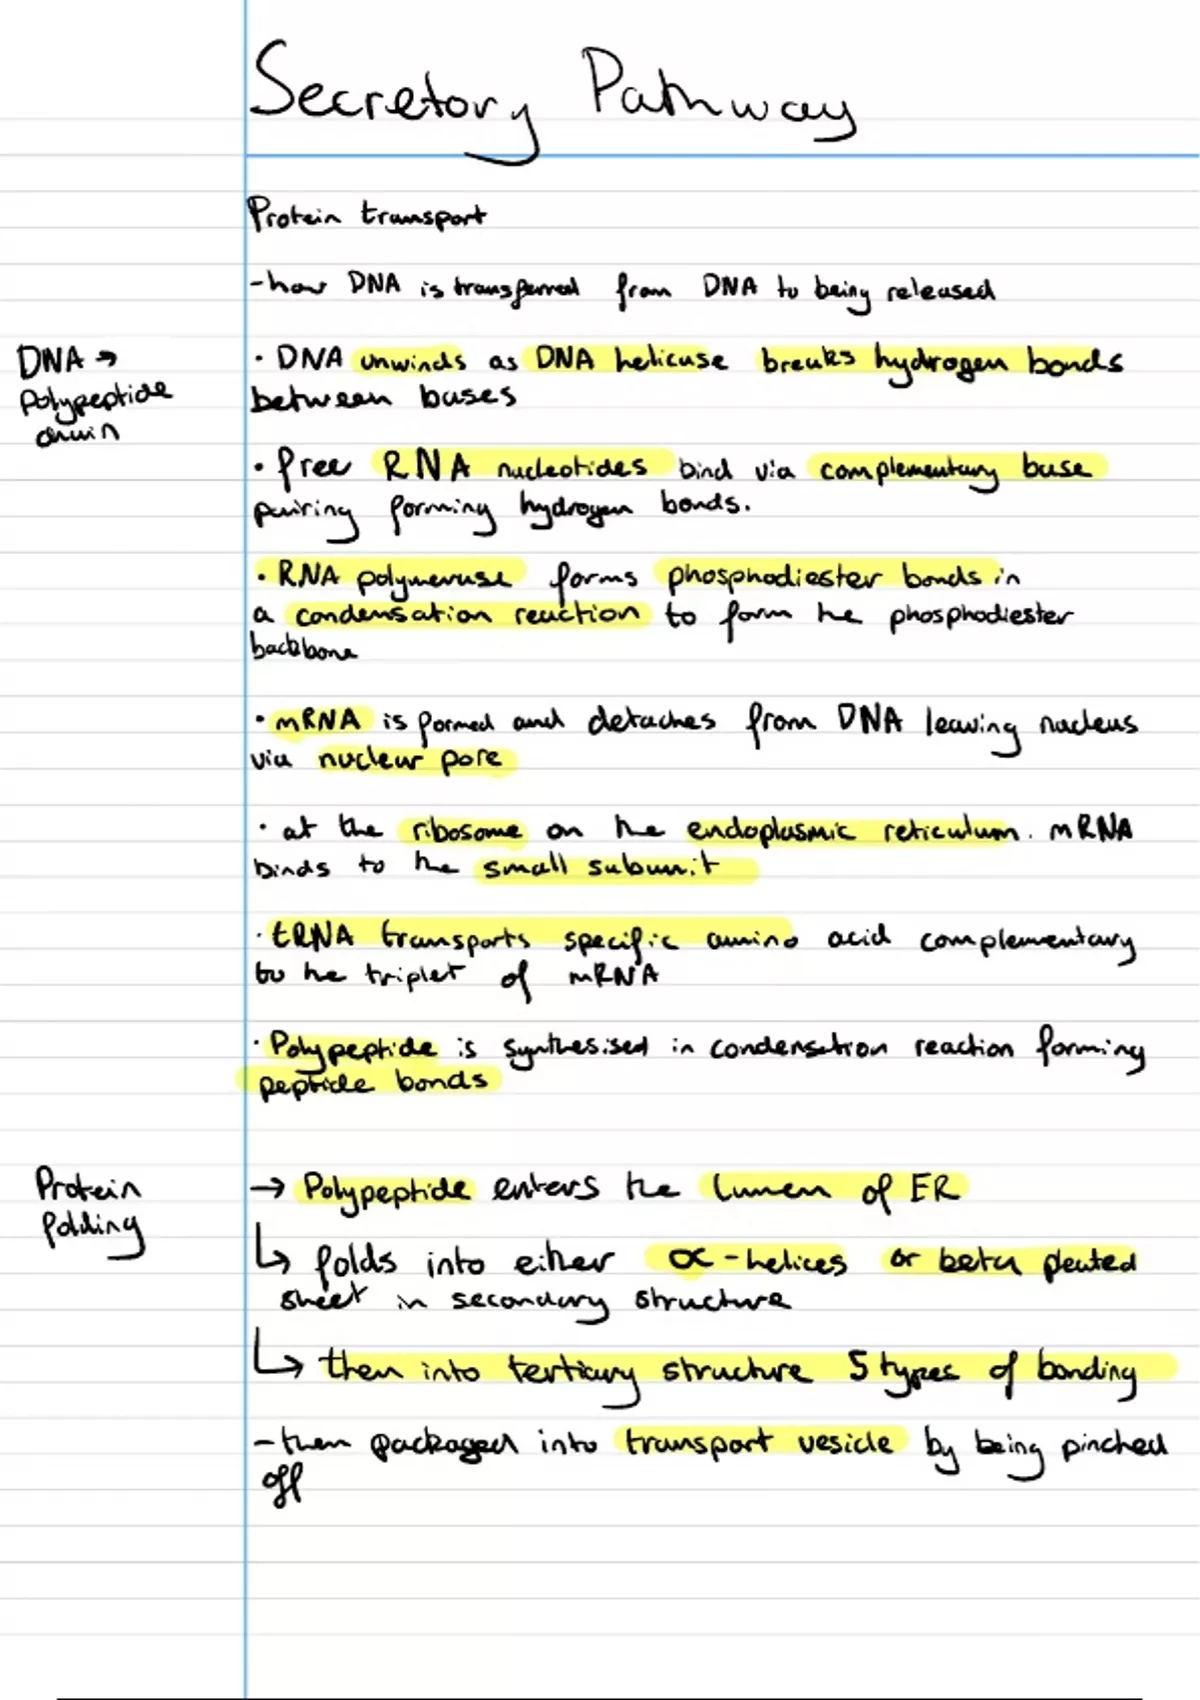 Secretory Pathway
Protein transport
-how DNA is transferred from DNA to being released
DNA →
Polypeptide
chain
• DNA unwinds as DNA helicase breaks hydrogen bonds
between bases
• free RNA nucleotides bind via complementary base
pairing forming hydrogen bonds.
• RNA polymerase forms phosphodiester bonds in
a condensation reaction to form the phosphodiester
backbone
• mRNA is formed and detaches from DNA leaving nucleus
via nuclear pore
• at the ribosome on the endoplasmic reticulum. mRNA
binds to the small subunit
• tRNA transports specific amino acid complementary
to the triplet of mRNA
• Polypeptide is synthesised in condensation reaction forming
peptide bonds
Protein
folding
→ Polypeptide enters the lumen of ER
↳ folds into either α-helices or beta pleated
sheet in secondary structure
↳ then into tertiary structure 5 types of bonding
- then packaged into transport vesicle by being pinched
off